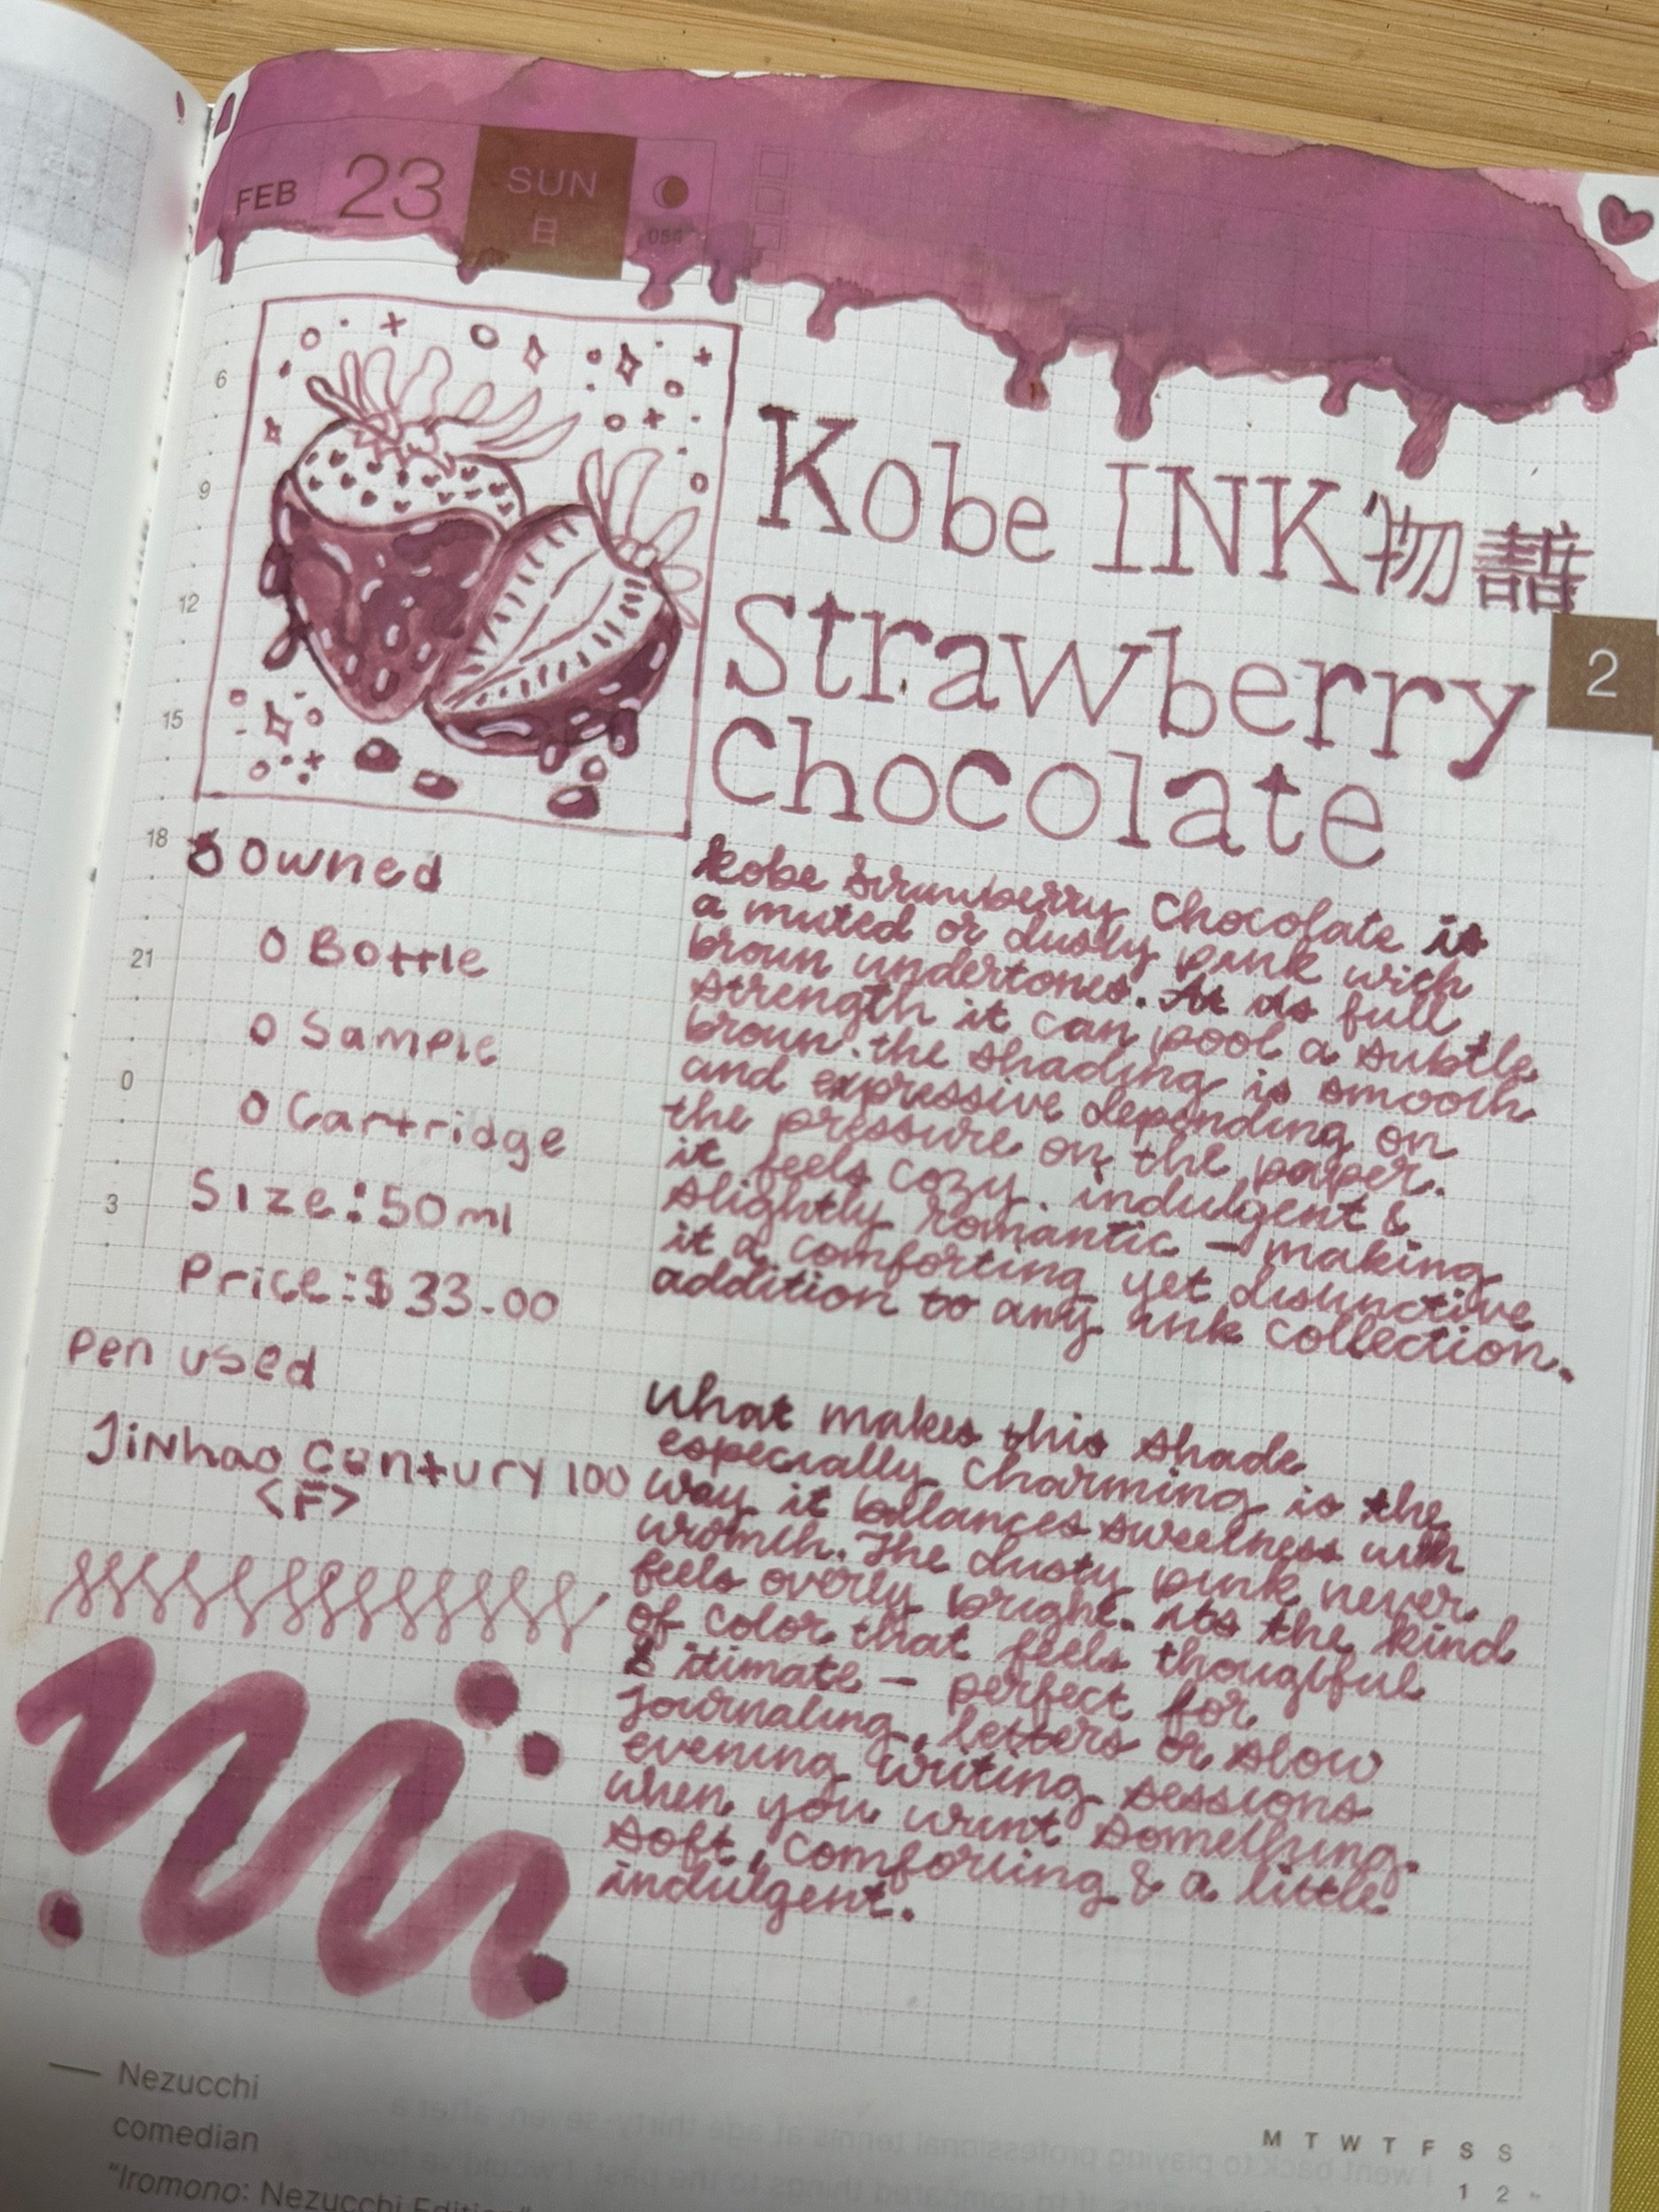 FEB 23 SUN
日
054
Kobe INK物語
Strawberry
Chocolate
2
6
9
12
15
18
21
0
3
Owned
O Bottle
O Sample
O Cartridge
Size: 50ml
Price: $33.00
Pen used
JiNhao Century 100
<F>
Kobe Strawberry Chocolate is
a muted or dusty pink with
brown undertones. At its full
strength it can pool a subtle
brown. the shading is smooth
and expressive depending on
the pressure on the paper.
it feels cozy. indulgent &
slightly romantic – making
it a comforting yet distinctive
addition to any ink collection.
What makes this shade
especially charming is the
way it ballances sweetness with
wromth. The dusty pink never
feels overly bright. its the kind
of color that feels thougtful
& itimate – perfect for
Journaling, letters or slow
evening writing sessions
when you want something
soft, comforting & a little
indulgent.
— Nezucchi
comedian
"Iromono: Nezucchi Edition"
M T W T F S S
1 2